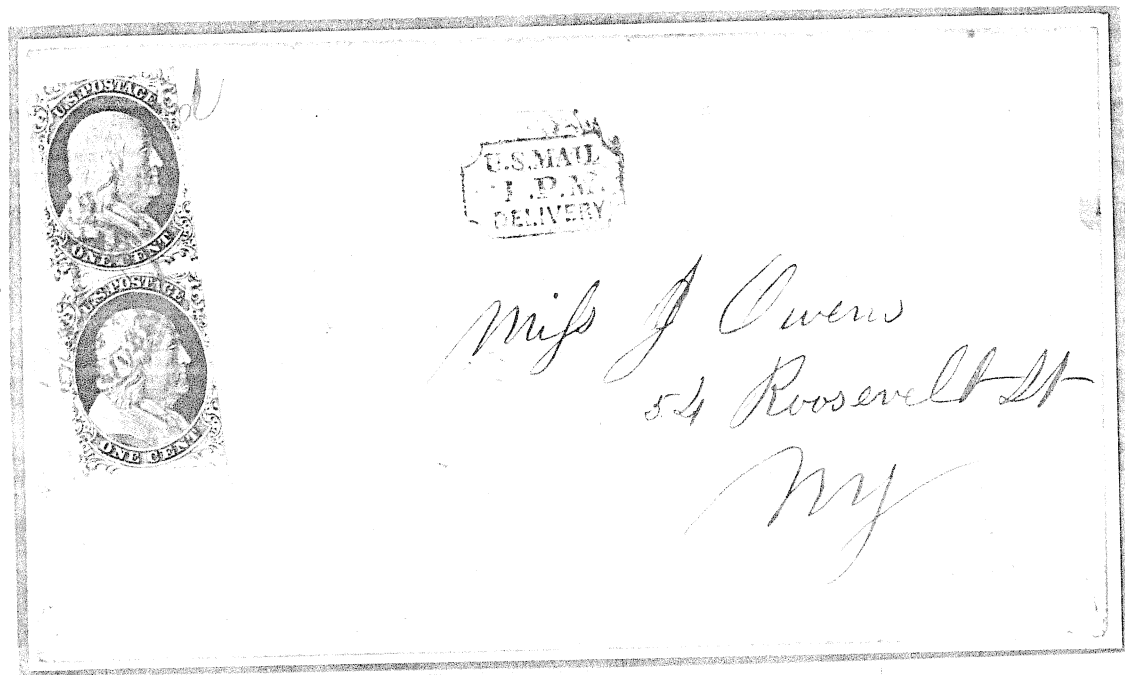 U.S. POSTAGE
ONE CENT
U.S. POSTAGE
ONE CENT
U.S. MAIL
1 P.M.
DELIVERY
Miss J Owens
54 Roosevelt St
NY